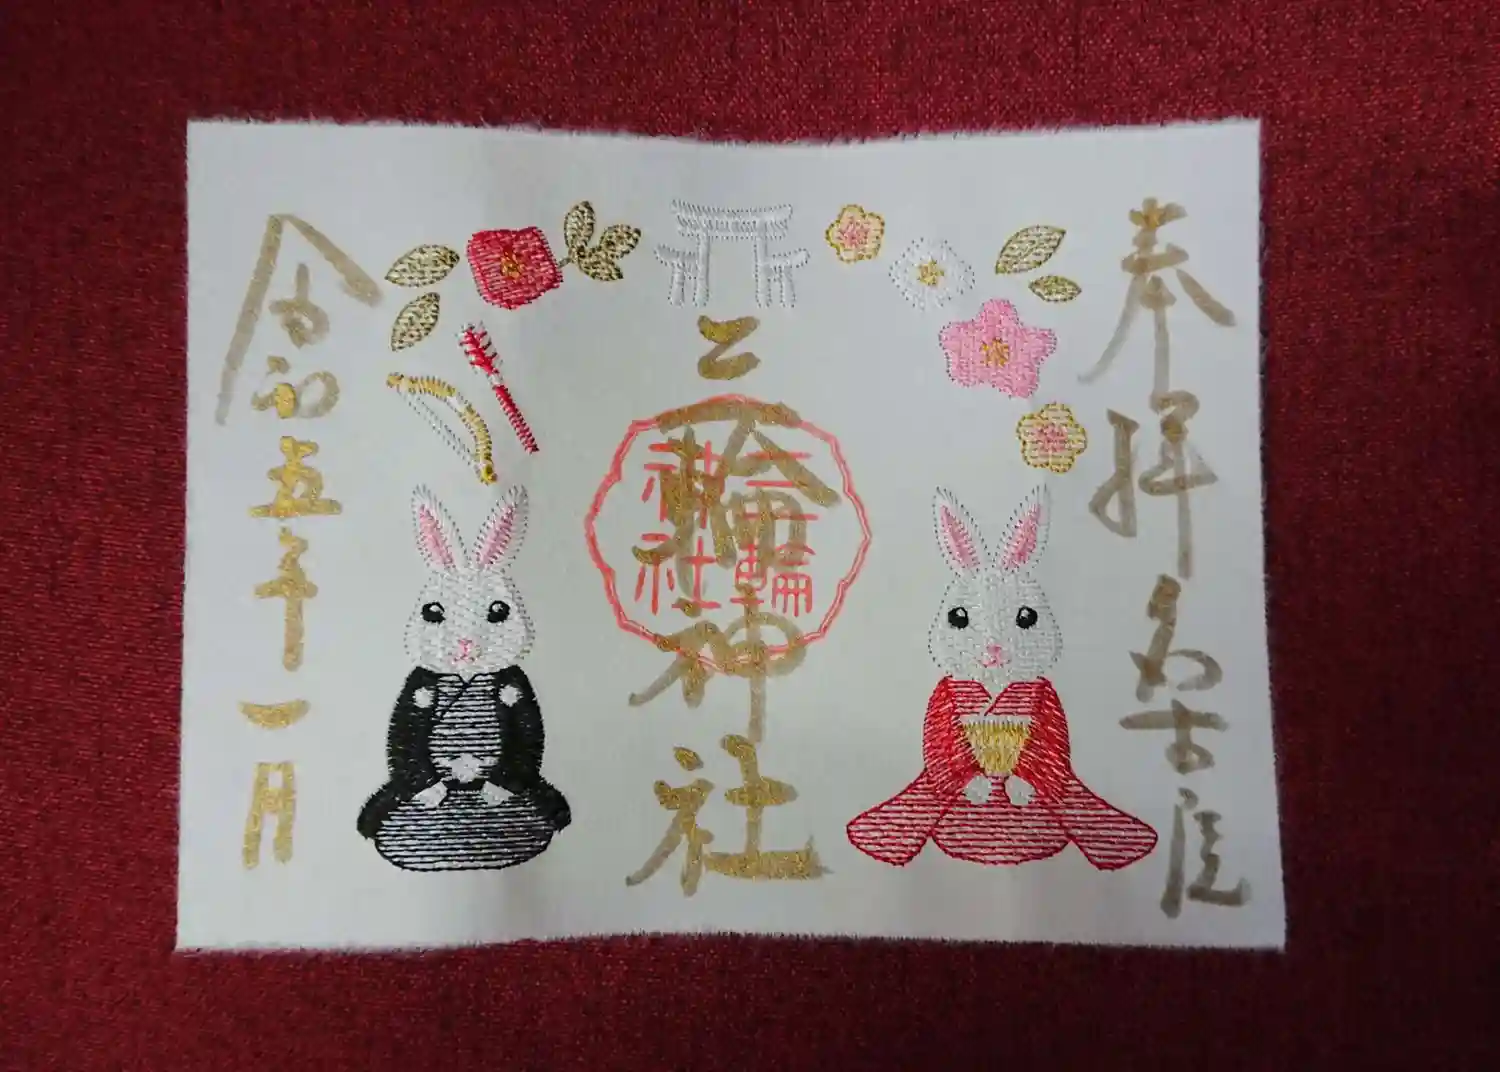 奉拝 名古屋
三輪神社
三輪
神社
令和五年一月